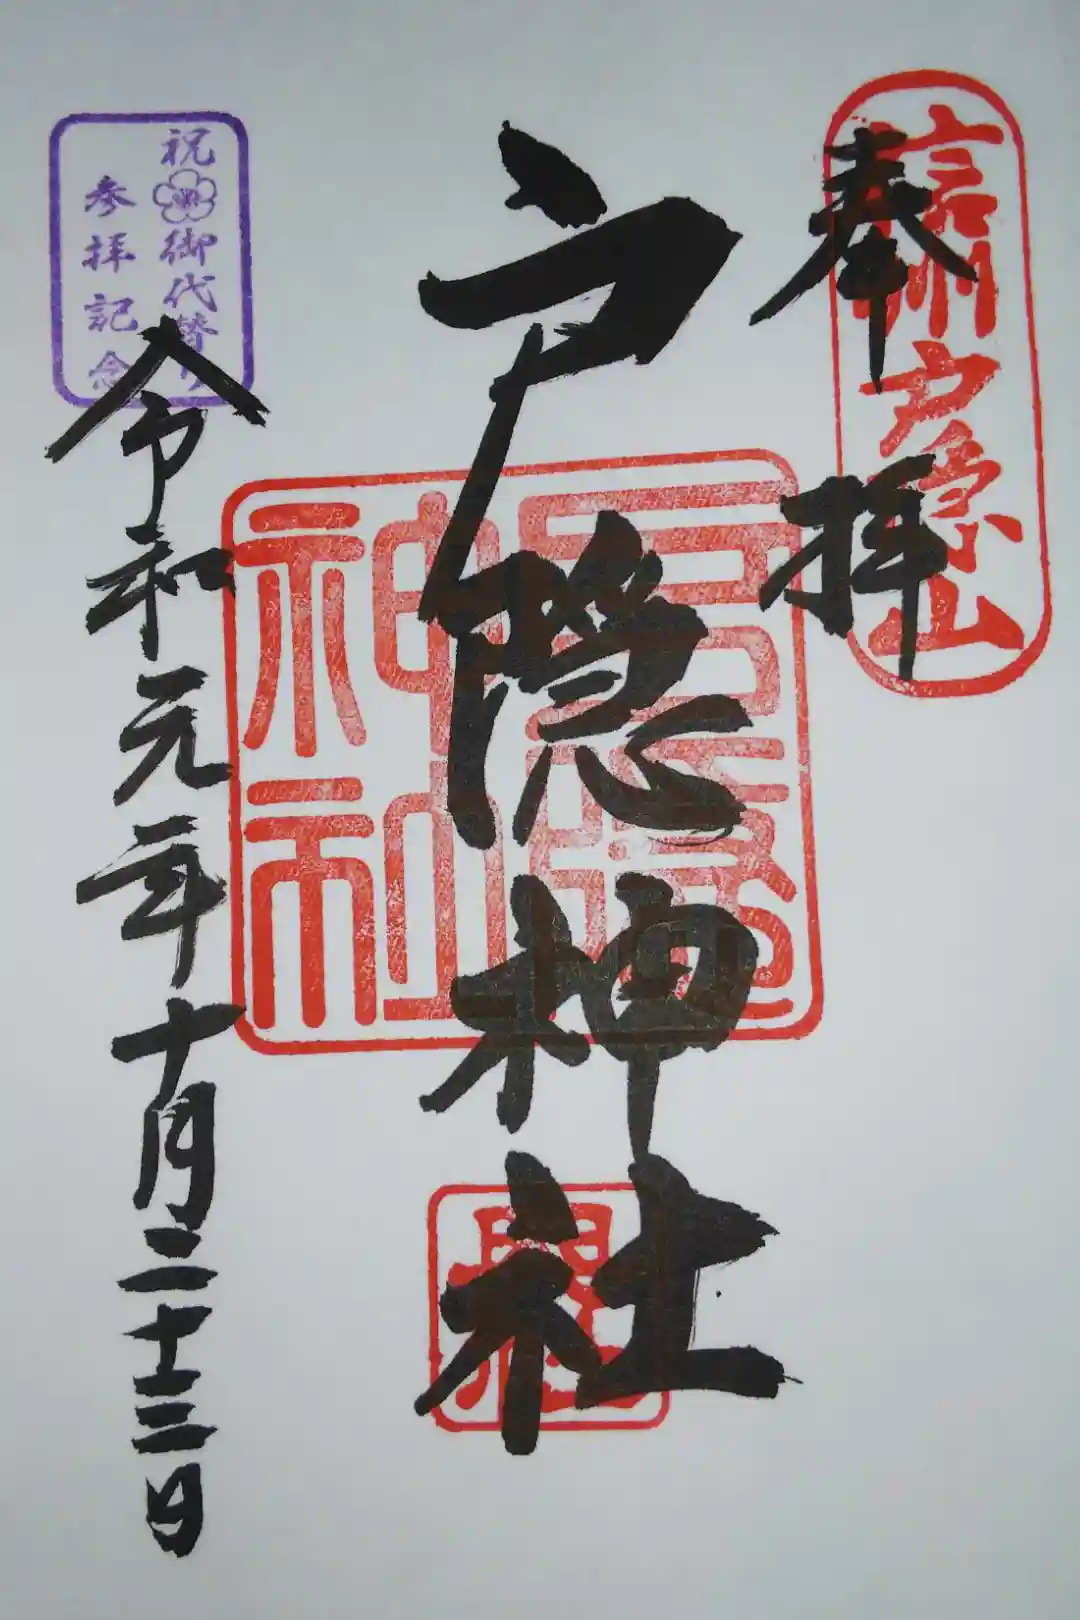 信州戸隠山
奉拝
戸隠神社
戸隠神社
令和元年十月二十三日
祝御代替り
参拝記念